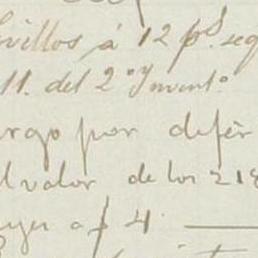 villos á 12 ps. seg
11. del 2º Invent.º
argo por difer
l valor de los 218
á $ 4